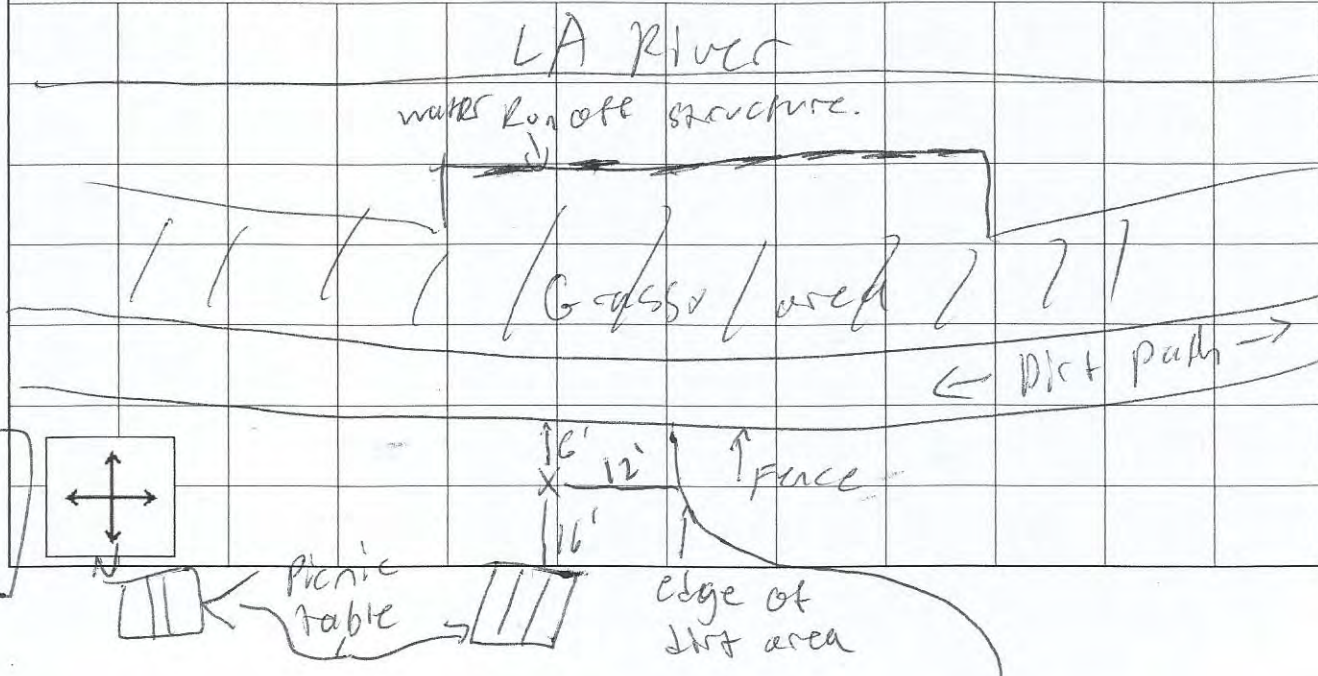 LA River
water Run off structure.
Grassy area
← Dirt path →
6'
X
12'
↑ Fence
16'
N
Picnic
table
edge of
dirt area